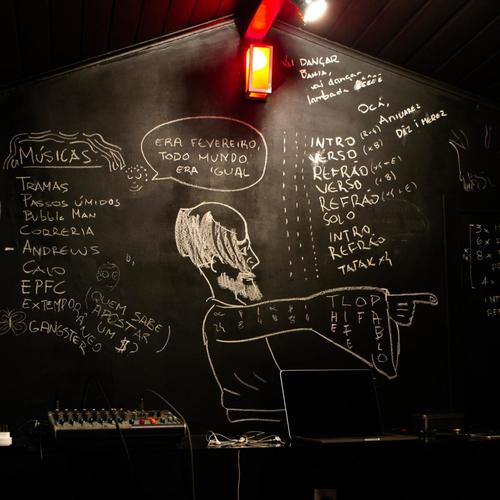 MÚSICAS
TRAMAS
PASSOS ÚMIDOS
BUBBLE MAN
CORRERIA
- ANDREWS
CAIO
EPFC
EXTEMPORÂNEO
GANGSTER
(QUEM SABE
APOSTAR
UM $?)
ERA FEVEREIRO,
TODO MUNDO
ERA IGUAL
VAI DANÇAR
BAHIA,
vai dançar
lambada
OCÁ,
INTRO
VERSO (x8)
REFRÃO
VERSO
REFRÃO
SOLO
INTRO
REFRÃO
THE
LIFE
OF
PABLO